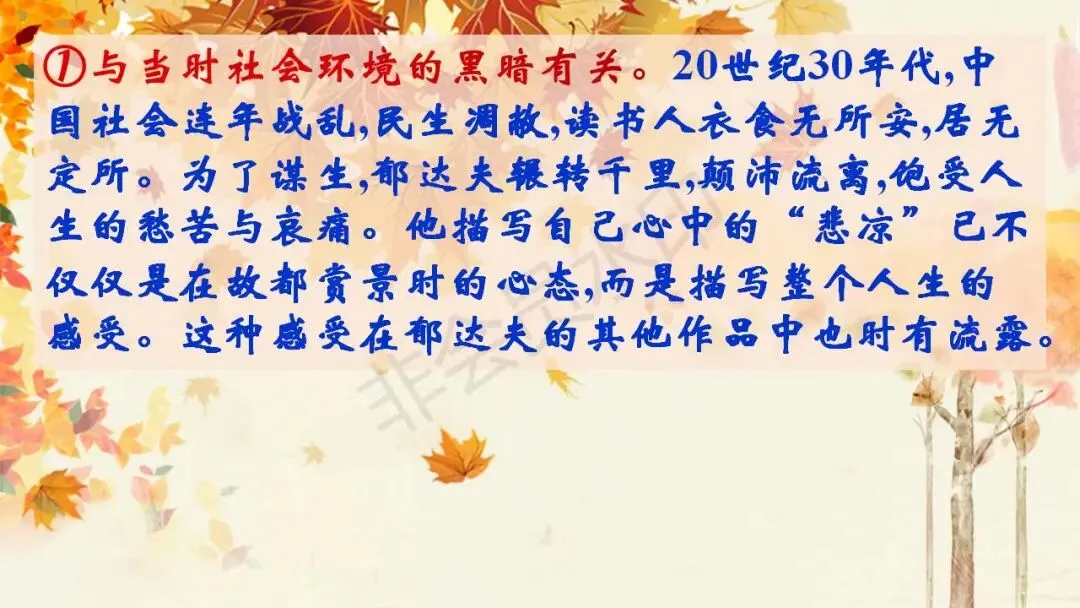 ①与当时社会环境的黑暗有关。20世纪30年代,中
国社会连年战乱,民生凋敝,读书人衣食无所安,居无
定所。为了谋生,郁达夫辗转千里,颠沛流离,饱受人
生的愁苦与哀痛。他描写自己心中的“悲凉”已不
仅仅是在故都赏景时的心态,而是描写整个人生的
感受。这种感受在郁达夫的其他作品中也时有流露。
非会员水印